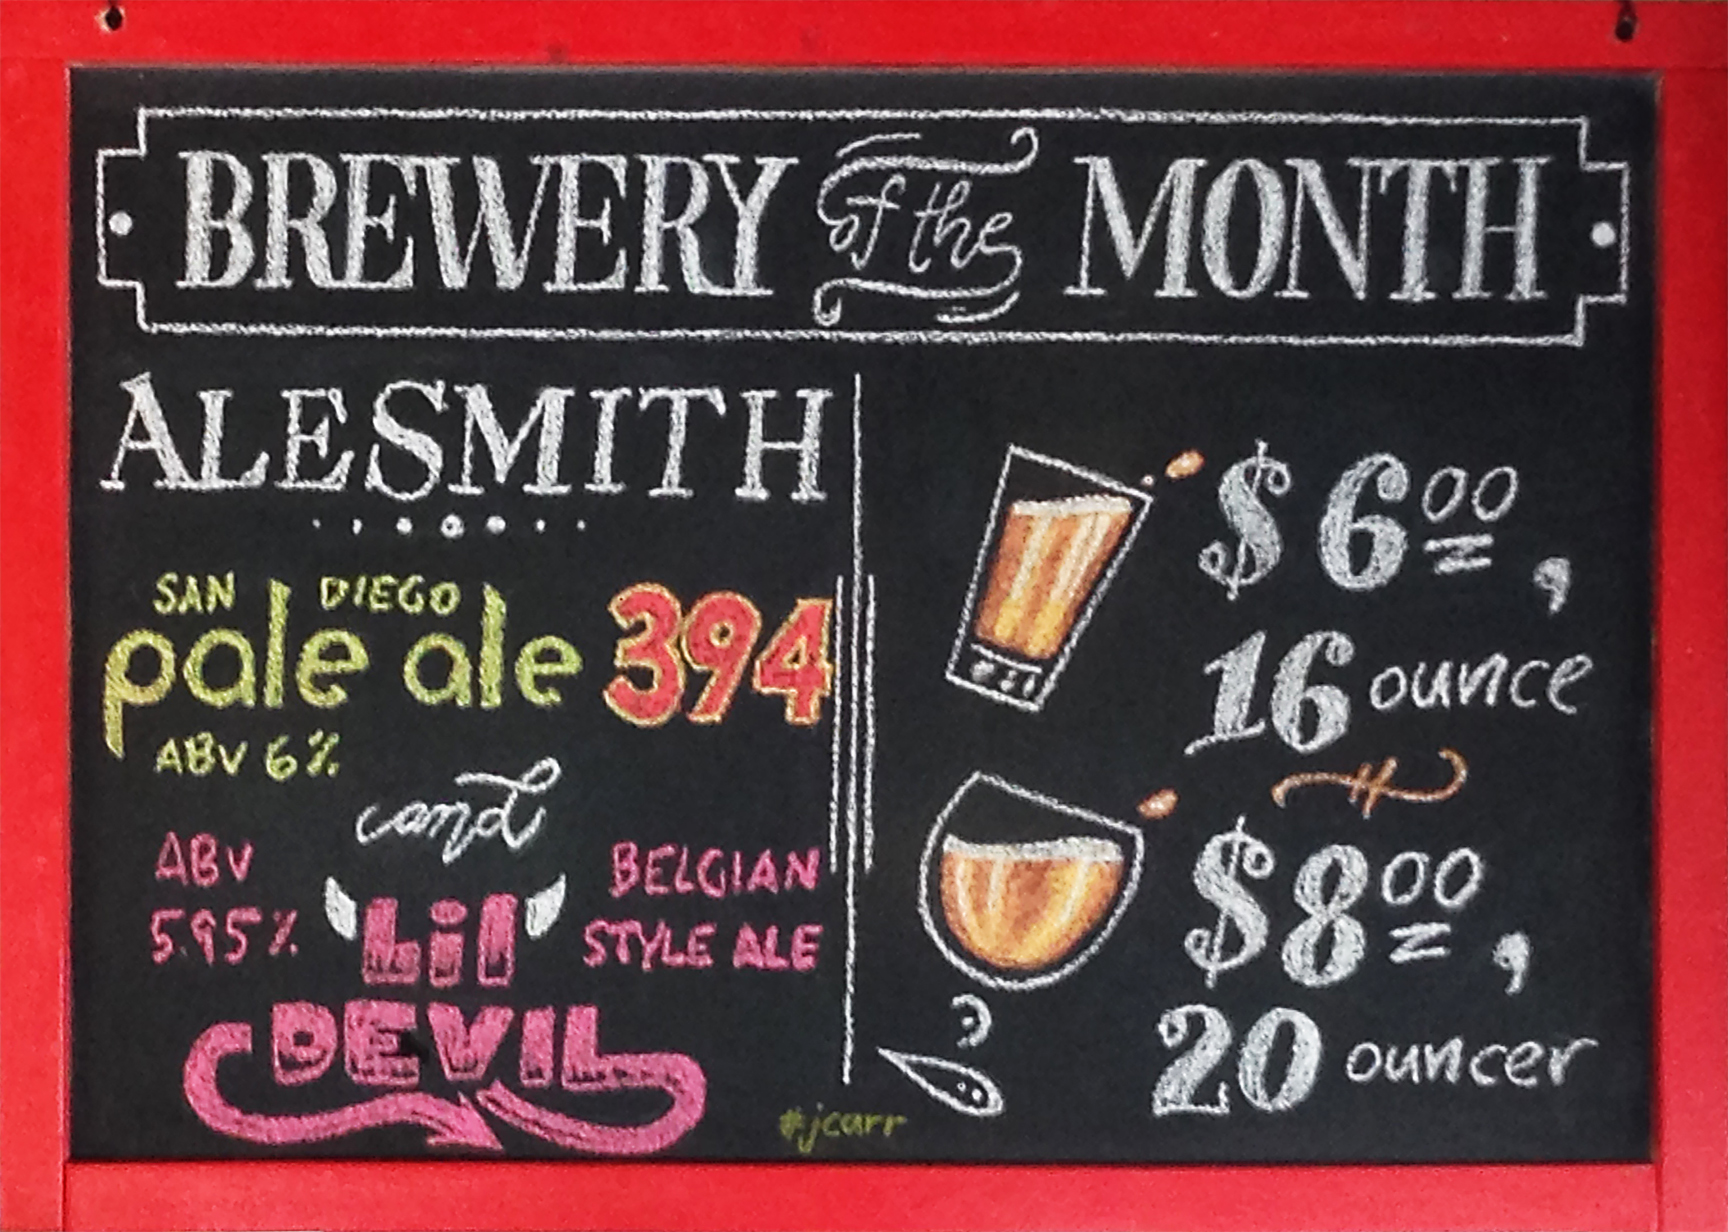 BREWERY of the MONTH
ALESMITH
SAN DIEGO
pale ale 394
ABV 6%
and
ABV
5.95%
Lil
DEVIL
BELGIAN
STYLE ALE
$6.00,
16 ounce
$8.00,
20 ouncer
#jcarr